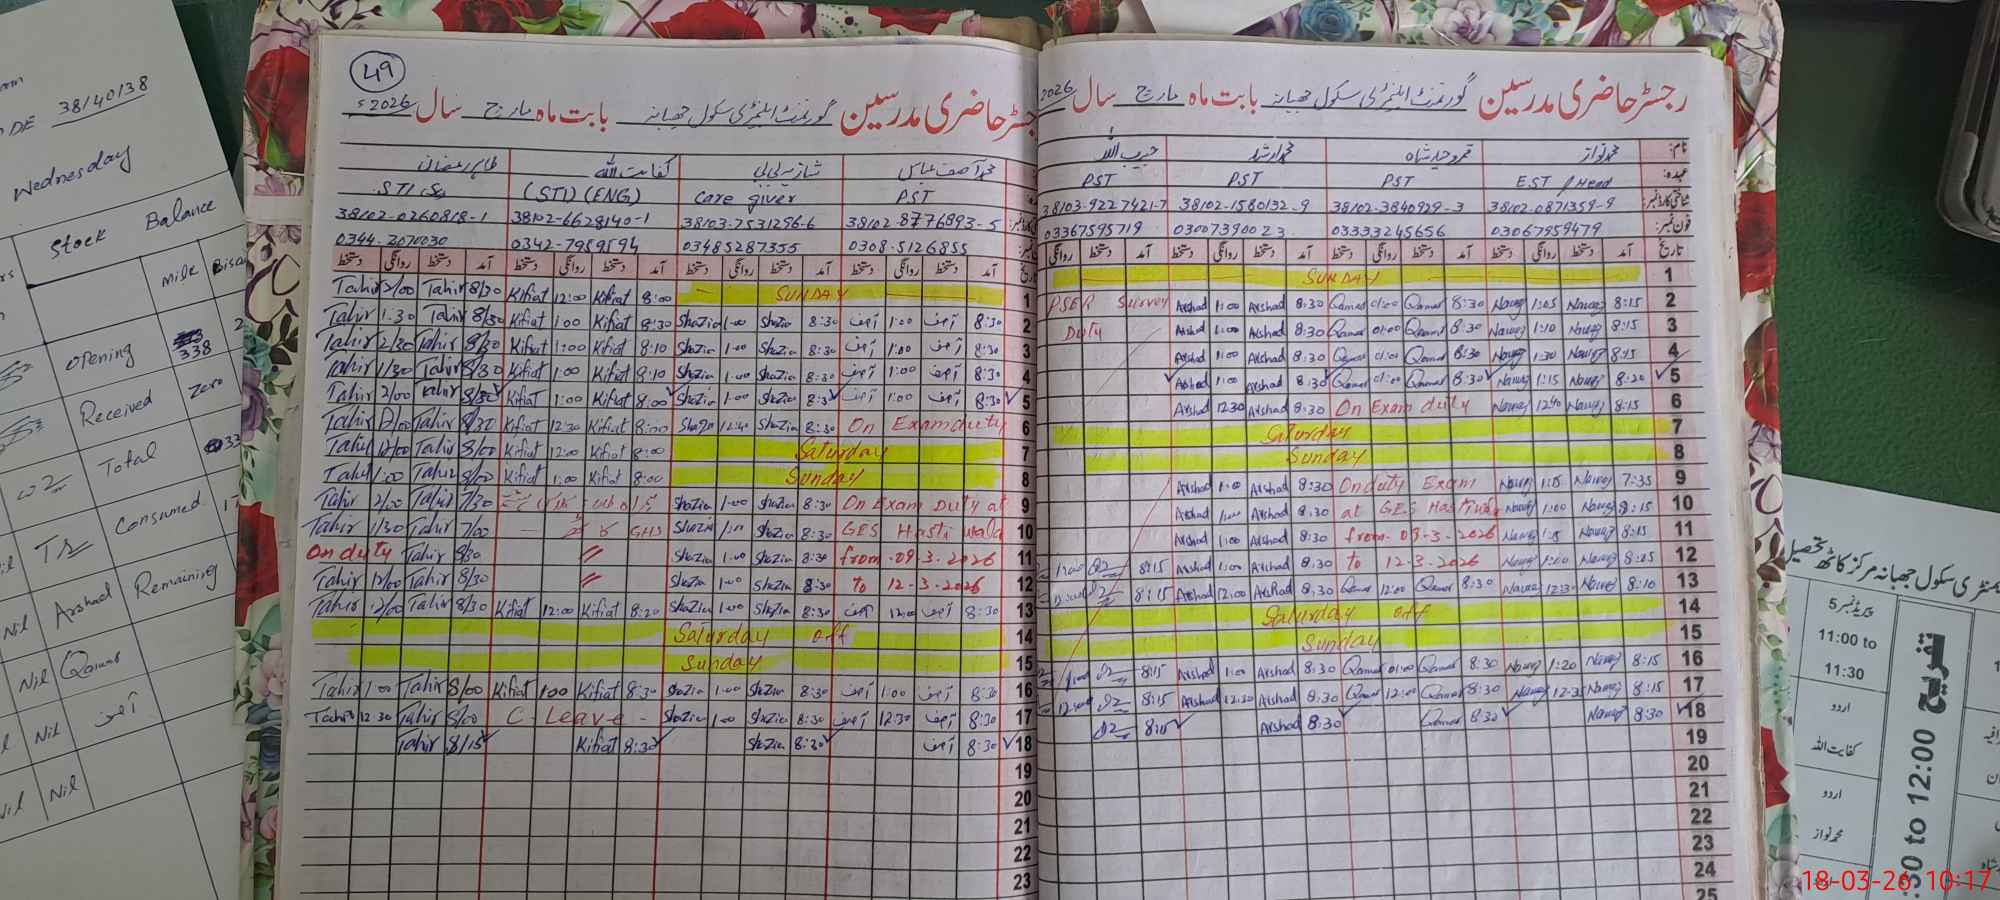 38140138
Wednesday
Stock Balance
Milk
opening 338
Received Zero
Total
Consumed
Remaining
Arshad
Nil Qamar
Nil آصف
Nil
49
رجسٹر حاضری مدرسین گورنمنٹ ایلیمنٹری سکول جھبانہ بابت ماہ مارچ سال 2026ء
طاہر رمضان کفایت اللہ شازیہ بی بی محمد آصف عباس
STI (STI) (ENG) Care giver PST
38102-0260818-1 38102-6628140-1 38103-7531256-6 38102-8776893-5
0344-2070030 0342-7959594 03485287355 0308-5126855
دستخط روانگی دستخط آمد دستخط روانگی دستخط آمد دستخط روانگی دستخط آمد دستخط روانگی دستخط آمد تاریخ
Tahir 2/00 Tahir 8/30 Kifiat 12:00 Kifiat 8:00 SUNDAY 1
Tahir 1:30 Tahir 8/30 Kifiat 1:00 Kifiat 8:30 Shazia 1:00 Shazia 8:30 آصف 1:00 آصف 8:30 2
Tahir 2/30 Tahir 8/30 Kifiat 1:00 Kifiat 8:10 Shazia 1:00 Shazia 8:30 آصف 1:00 آصف 8:30 3
Tahir 1/30 Tahir 8/30 Kifiat 1:00 Kifiat 8:10 Shazia 1:00 Shazia 8:30 آصف 1:00 آصف 8:30 4
Tahir 2/00 Tahir 8/30 Kifiat 1:00 Kifiat 8:00 Shazia 1:00 Shazia 8:30 آصف 1:00 آصف 8:30 5
Tahir 12/00 Tahir 8/30 Kifiat 12:30 Kifiat 8:00 Shazia 12:40 Shazia 8:30 On Exam duty 6
Tahir 12/00 Tahir 8/00 Kifiat 12:00 Kifiat 8:00 Saturday 7
Tahir 1:00 Tahir 8/00 Kifiat 1:00 Kifiat 8:00 Sunday 8
Tahir 2/00 Tahir 7/30 Shazia 1:00 Shazia 8:30 On Exam Duty at 9
Tahir 1/30 Tahir 7/00 GHS Shazia 1:00 Shazia 8:30 GES Hasti wala 10
On duty Tahir 8/30 〃 Shazia 1:00 Shazia 8:30 from 09-3-2026 11
Tahir 12/00 Tahir 8/30 〃 Shazia 1:00 Shazia 8:30 to 12-3-2026 12
Tahir 12/00 Tahir 8/30 Kifiat 12:00 Kifiat 8:20 Shazia 1:00 Shazia 8:30 آصف 12:00 آصف 8:30 13
Saturday off 14
Sunday 15
Tahir 1:00 Tahir 8/00 Kifiat 1:00 Kifiat 8:30 Shazia 1:00 Shazia 8:30 آصف 1:00 آصف 8:30 16
Tahir 12:30 Tahir 8/00 C-Leave - Shazia 1:00 Shazia 8:30 آصف 12:30 آصف 8:30 17
Tahir 8/15 Kifiat 8:30 Shazia 8:30 آصف 8:30 18
19
20
21
22
23
رجسٹر حاضری مدرسین گورنمنٹ ایلیمنٹری سکول جھبانہ بابت ماہ مارچ سال 2026
حبیب اللہ محمد ارشد قمر حیدر شاہ محمد نواز نام:
PST PST PST EST / Head عہدہ:
38103-9227421-7 38102-1580132-9 38102-3840929-3 38102-0871359-9 شناختی کارڈ نمبر:
03367595719 03007390023 03333245656 03067959479 فون نمبر:
روانگی دستخط آمد دستخط روانگی دستخط آمد دستخط روانگی دستخط آمد دستخط روانگی دستخط آمد تاریخ
SUNDAY 1
PSER Survey Arshad 1:00 Arshad 8:30 Qamar 01:00 Qamar 8:30 Nawaz 1:05 Nawaz 8:15 2
Duty Arshad 1:00 Arshad 8:30 Qamar 01:00 Qamar 8:30 Nawaz 1:10 Nawaz 8:15 3
Arshad 1:00 Arshad 8:30 Qamar 01:00 Qamar 8:30 Nawaz 1:30 Nawaz 8:15 4
Arshad 1:00 Arshad 8:30 Qamar 01:00 Qamar 8:30 Nawaz 1:15 Nawaz 8:20 5
Arshad 12:30 Arshad 8:30 On Exam duty Nawaz 12:40 Nawaz 8:15 6
Saturday 7
Sunday 8
Arshad 1:00 Arshad 8:30 On duty Exam Nawaz 1:15 Nawaz 7:35 9
Arshad 1:00 Arshad 8:30 at GES Hasti Nawaz 1:00 Nawaz 8:15 10
Arshad 1:00 Arshad 8:30 from 09-3-2026 Nawaz 1:15 Nawaz 8:15 11
1:00 8:15 Arshad 1:00 Arshad 8:30 to 12-3-2026 Nawaz 1:00 Nawaz 8:15 12
12:00 8:15 Arshad 12:00 Arshad 8:30 Qamar 12:00 Qamar 8:30 Nawaz 12:30 Nawaz 8:10 13
Saturday off 14
Sunday 15
1:00 8:15 Arshad 1:00 Arshad 8:30 Qamar 01:00 Qamar 8:30 Nawaz 1:20 Nawaz 8:15 16
12:30 8:15 Arshad 12:30 Arshad 8:30 Qamar 12:00 Qamar 8:30 Nawaz 12:35 Nawaz 8:15 17
8:15 Arshad 8:30 Qamar 8:30 Nawaz 8:30 18
19
20
21
22
23
24
25
سکول جھبانہ مرکز کاٹھہ تحصیل
پیریڈ نمبر 5
11:00 to
11:30
اردو
کفایت اللہ
اردو
محمد نواز
تفریح
:50 to 12:00
18-03-26 10:17